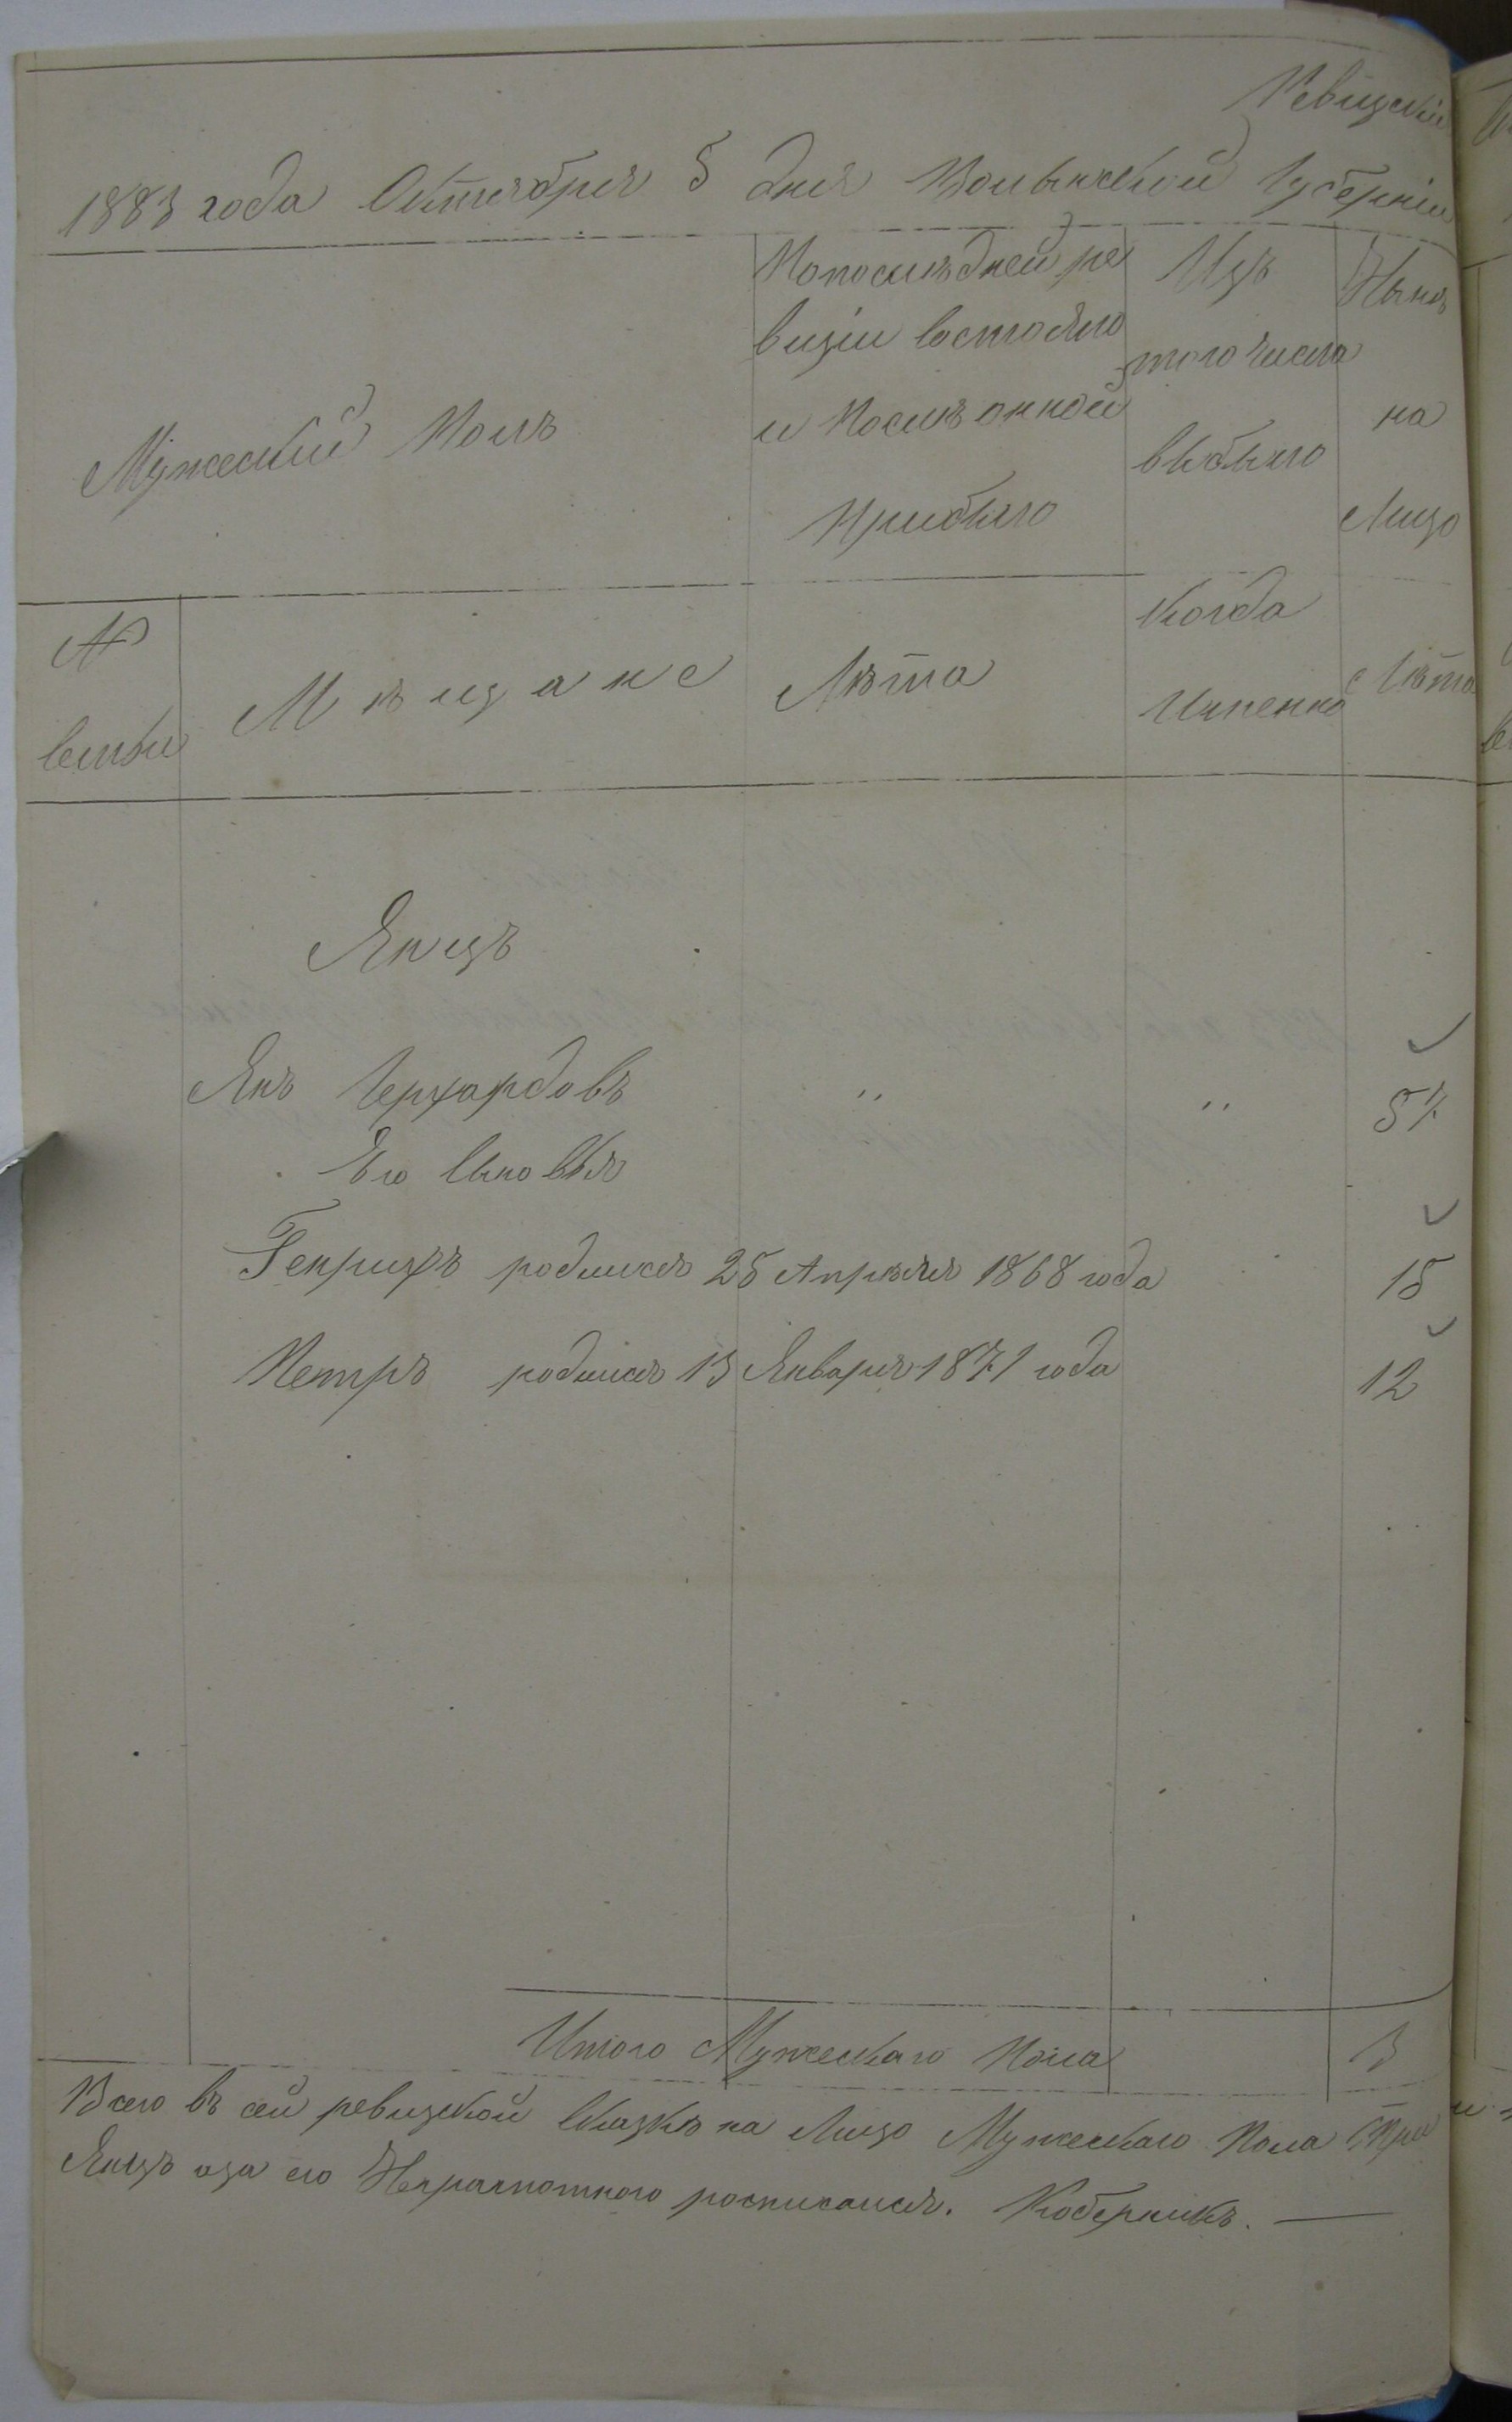 Ревизская
1883 года Октября 5 дня Волынской Губерніи
Мужеский Полъ
По последней ре
визіи состояло
и После онной
Прибыло
Изъ
того числа
выбыло
Ныне
на
Лицо
№
семьи
Мещане
Лѣта
Когда
Именно
Лѣта
Янцъ
Янъ Герхардовъ " " 57
Его Сыновья
Генрихъ родился 25 Апрѣля 1868 года 15
Петръ родился 13 Января 1871 года 12
Итого Мужескаго Пола 3
Всего въ сей ревизской Сказкѣ на Лицо Мужескаго Пола Три
Янцъ а за его Неграмотного росписался. Коберникъ.